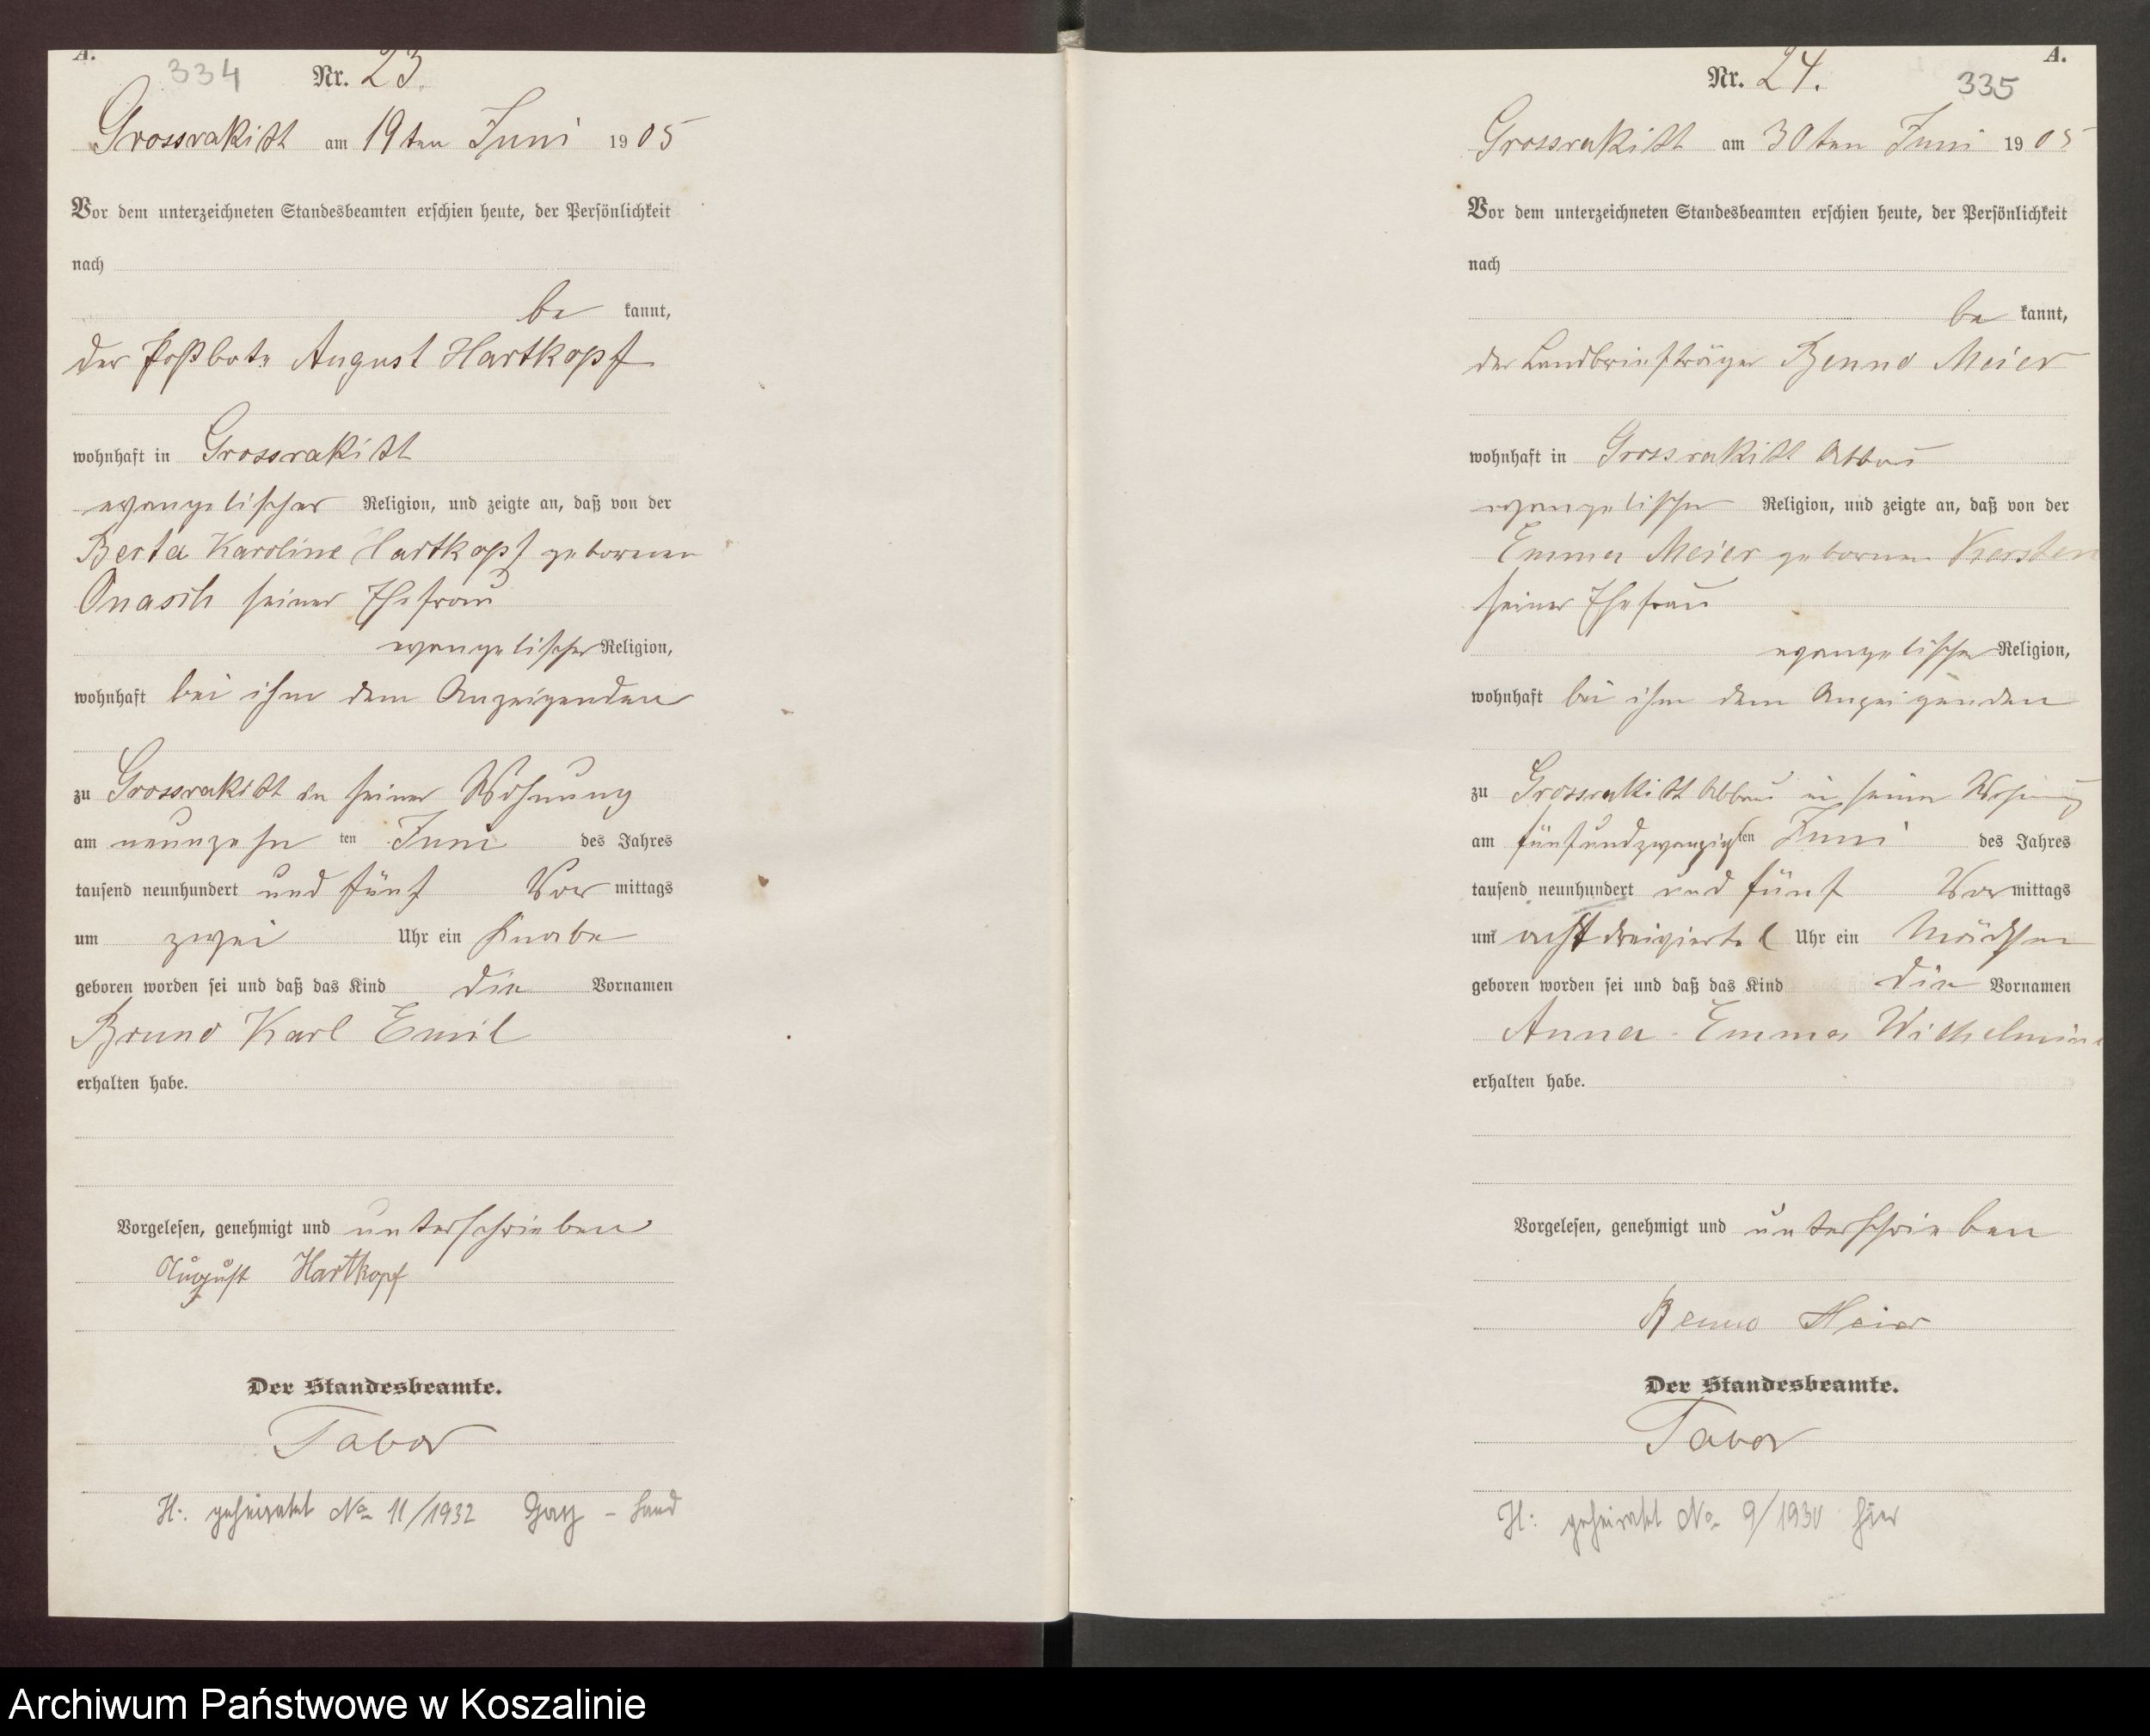 A.
334 Nr. 23.
Grossrakitt am 19ten Juni 1905
Vor dem unterzeichneten Standesbeamten erschien heute, der Persönlichkeit
nach
be kannt,
der Postbote August Hartkopf
wohnhaft in Grossrakitt
evangelischer Religion, und zeigte an, daß von der
Berta Karoline Hartkopf geborenen
Onasch seiner Ehefrau
evangelischer Religion,
wohnhaft bei ihm dem Anzeigenden
zu Grossrakitt in seiner Wohnung
am neunzehn ten Juni des Jahres
tausend neunhundert und fünf Vor mittags
um zwei Uhr ein Knabe
geboren worden sei und daß das Kind die Vornamen
Bruno Karl Emil
erhalten habe.
Vorgelesen, genehmigt und unterschrieben
August Hartkopf
Der Standesbeamte.
Tabor
H: geheiratet No 11/1932 - Land
A.
Nr. 24. 335
Grossrakitt am 30ten Juni 1905
Vor dem unterzeichneten Standesbeamten erschien heute, der Persönlichkeit
nach
be kannt,
der Landbriefträger Benno Meier
wohnhaft in Grossrakitt Abbau
evangelischer Religion, und zeigte an, daß von der
Emma Meier geborenen Kersten
seiner Ehefrau
evangelischer Religion,
wohnhaft bei ihm dem Anzeigenden
zu Grossrakitt Abbau in seiner Wohnung
am fünfundzwanzigsten Juni des Jahres
tausend neunhundert und fünf Vor mittags
um acht dreiviertel Uhr ein Mädchen
geboren worden sei und daß das Kind die Vornamen
Anna Emma Wilhelmine
erhalten habe.
Vorgelesen, genehmigt und unterschrieben
Benno Meier
Der Standesbeamte.
Tabor
H: geheiratet No 9/1930 hier
Archiwum Państwowe w Koszalinie